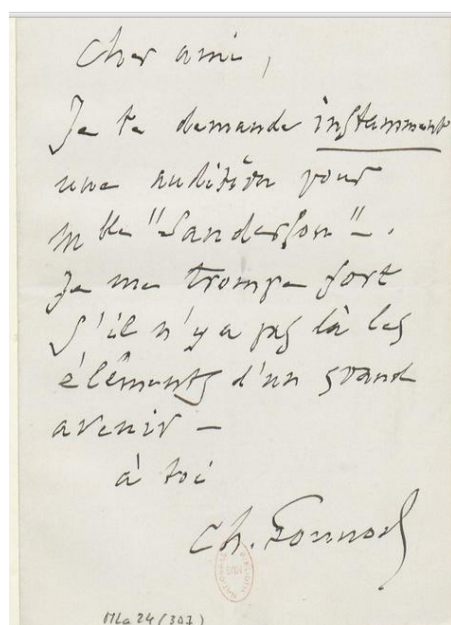 Cher ami,
Je te demande instamment
une audition pour
Mlle "Sanderson" –.
Je me trompe fort
s'il n'y a pas là les
éléments d'un grand
avenir –
à toi
Ch. Gounod
MLa 24 (307)